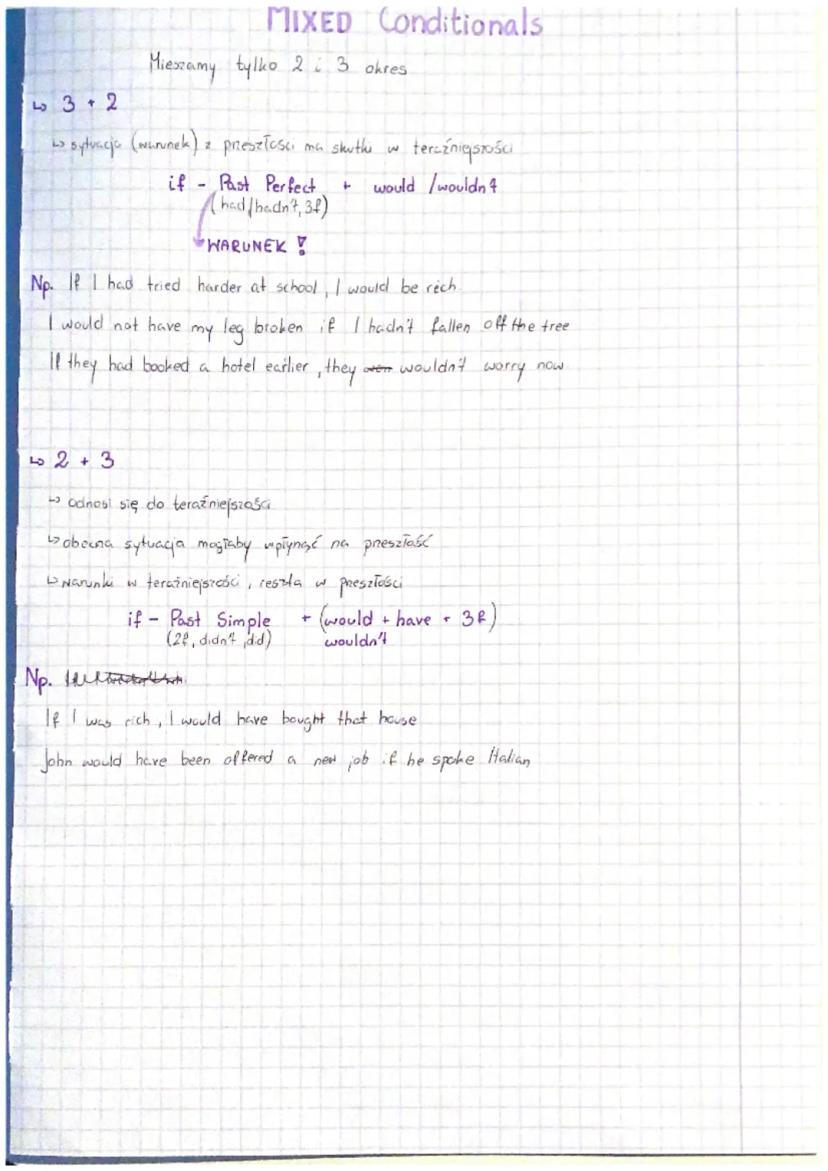 MIXED Conditionals
Mieszamy tylko 2 i 3 okres
↳ 3 + 2
↳ sytuacja (warunek) z przeszłości ma skutki w teraźniejszości
if - Past Perfect + would /wouldn't
(had/hadn't, 3f)
WARUNEK !
Np. If I had tried harder at school, I would be rich
I would not have my leg broken if I hadn't fallen off the tree
If they had booked a hotel earlier, they wouldn't worry now
↳ 2 + 3
↳ odnosi się do teraźniejszości
↳ obecna sytuacja mogłaby wpłynąć na przeszłość
↳ warunki w teraźniejszości, reszta w przeszłości
if - Past Simple + (would + have + 3f)
(2f, didn't, did) wouldn't
Np.
If I was rich, I would have bought that house
John would have been offered a new job if he spoke Italian